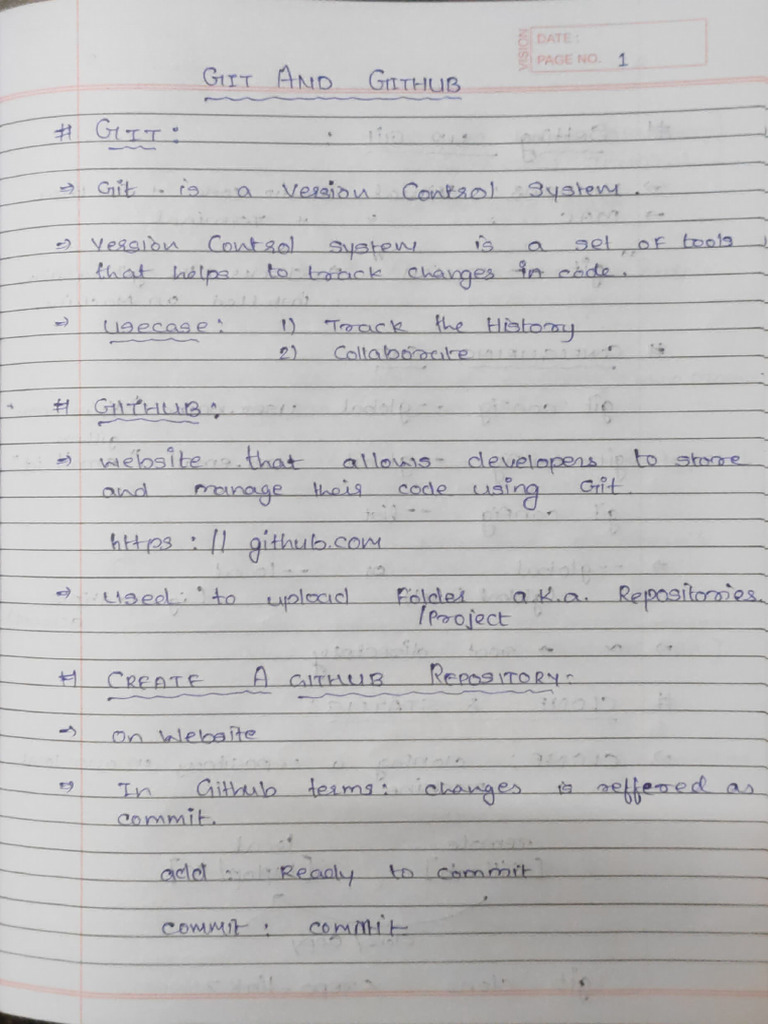 VISION
DATE :
PAGE NO. 1
GIT AND GITHUB
# GIT :
⇒ Git is a Version Control System.
⇒ Version Control system is a set of tools
that helps to track changes in code.
⇒ usecase : 1) Track the History
2) Collaborate
# GITHUB :
⇒ website that allows developers to store
and manage their code using Git.
https : // github.com
⇒ used to upload Folder a.k.a. Repositories.
/Project
# CREATE A GITHUB REPOSITORY :
⇒ on Website
⇒ In Github terms : changes is reffered as
commit.
add : Ready to commit
commit : commit